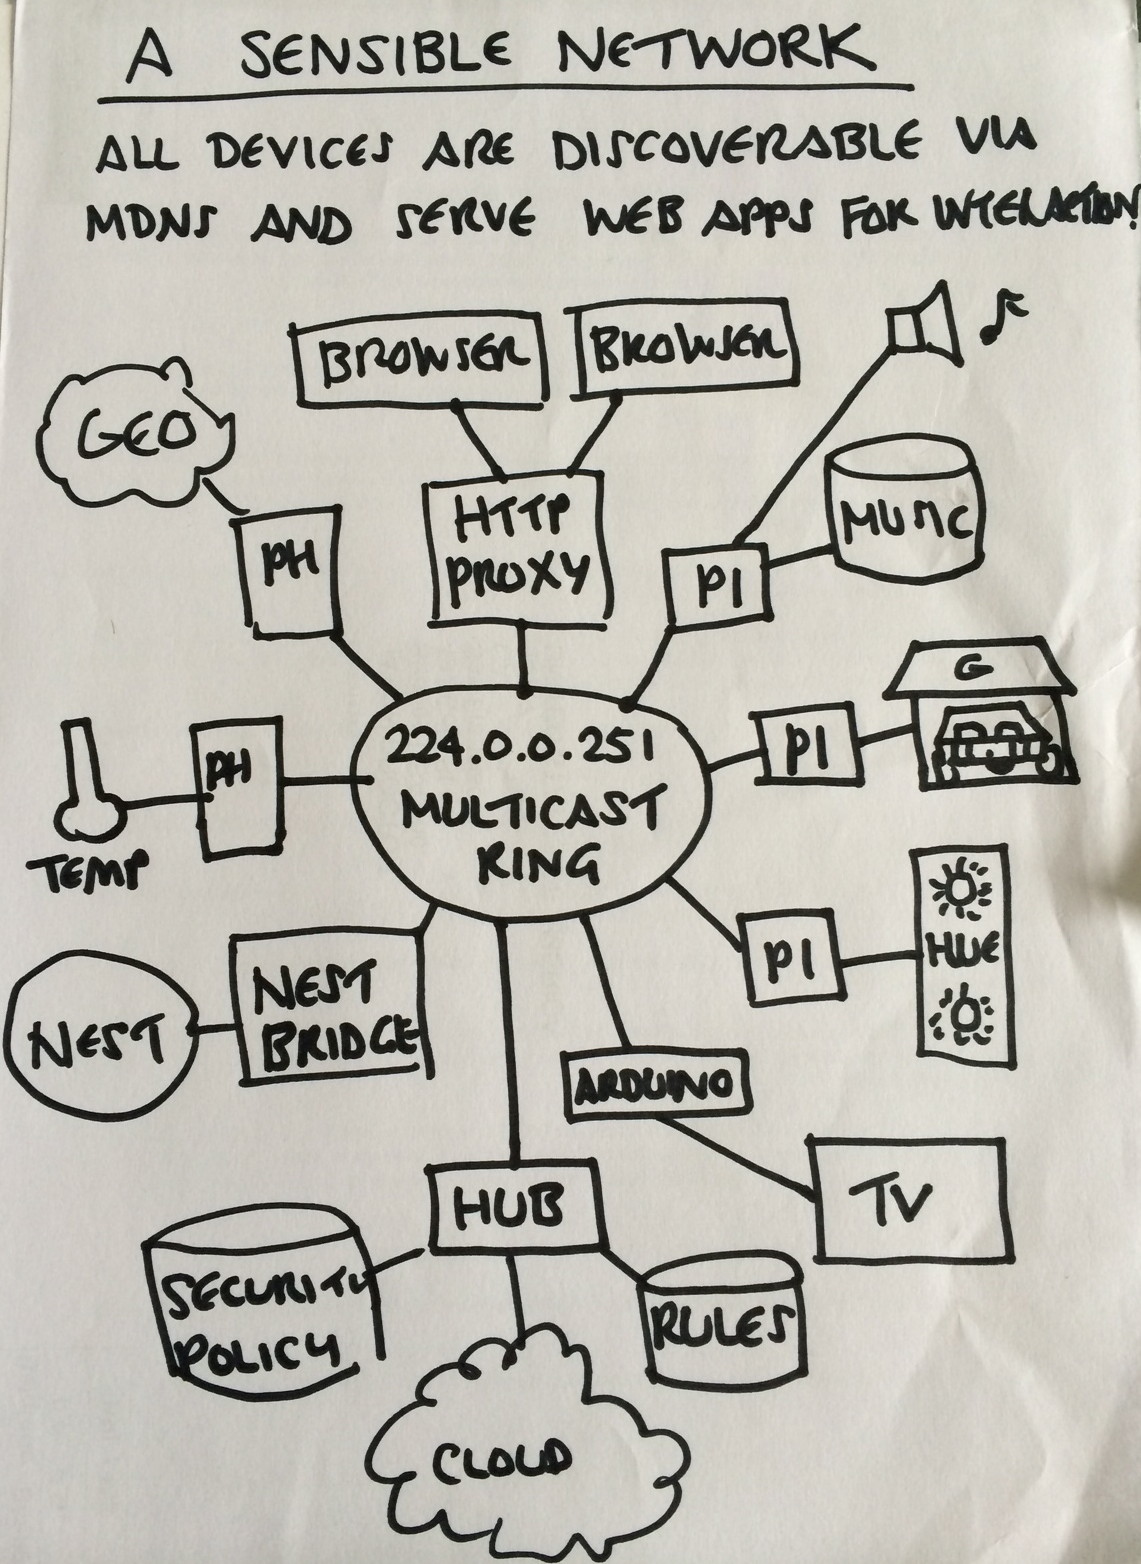 A SENSIBLE NETWORK
ALL DEVICES ARE DISCOVERABLE VIA
MDNS AND SERVE WEB APPS FOR INTERACTION!
BROWSER
BROWSER
GEO
HTTP
PROXY
MUSIC
PH
PI
G
224.0.0.251
MULTICAST
RING
PI
PH
TEMP
HUE
PI
NEST
BRIDGE
NEST
ARDUINO
HUB
TV
SECURITY
POLICY
RULES
CLOUD